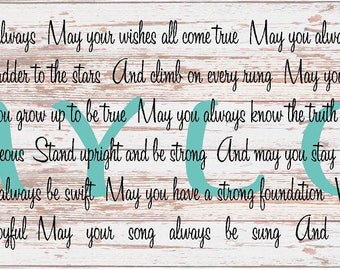 always May your wishes all come true May you alwa
adder to the stars And climb on every rung May you
you grow up to be true May you always know the truth
AYLO
eous Stand upright and be strong And may you stay
always be swift May you have a strong foundation
oyful May your song always be sung And